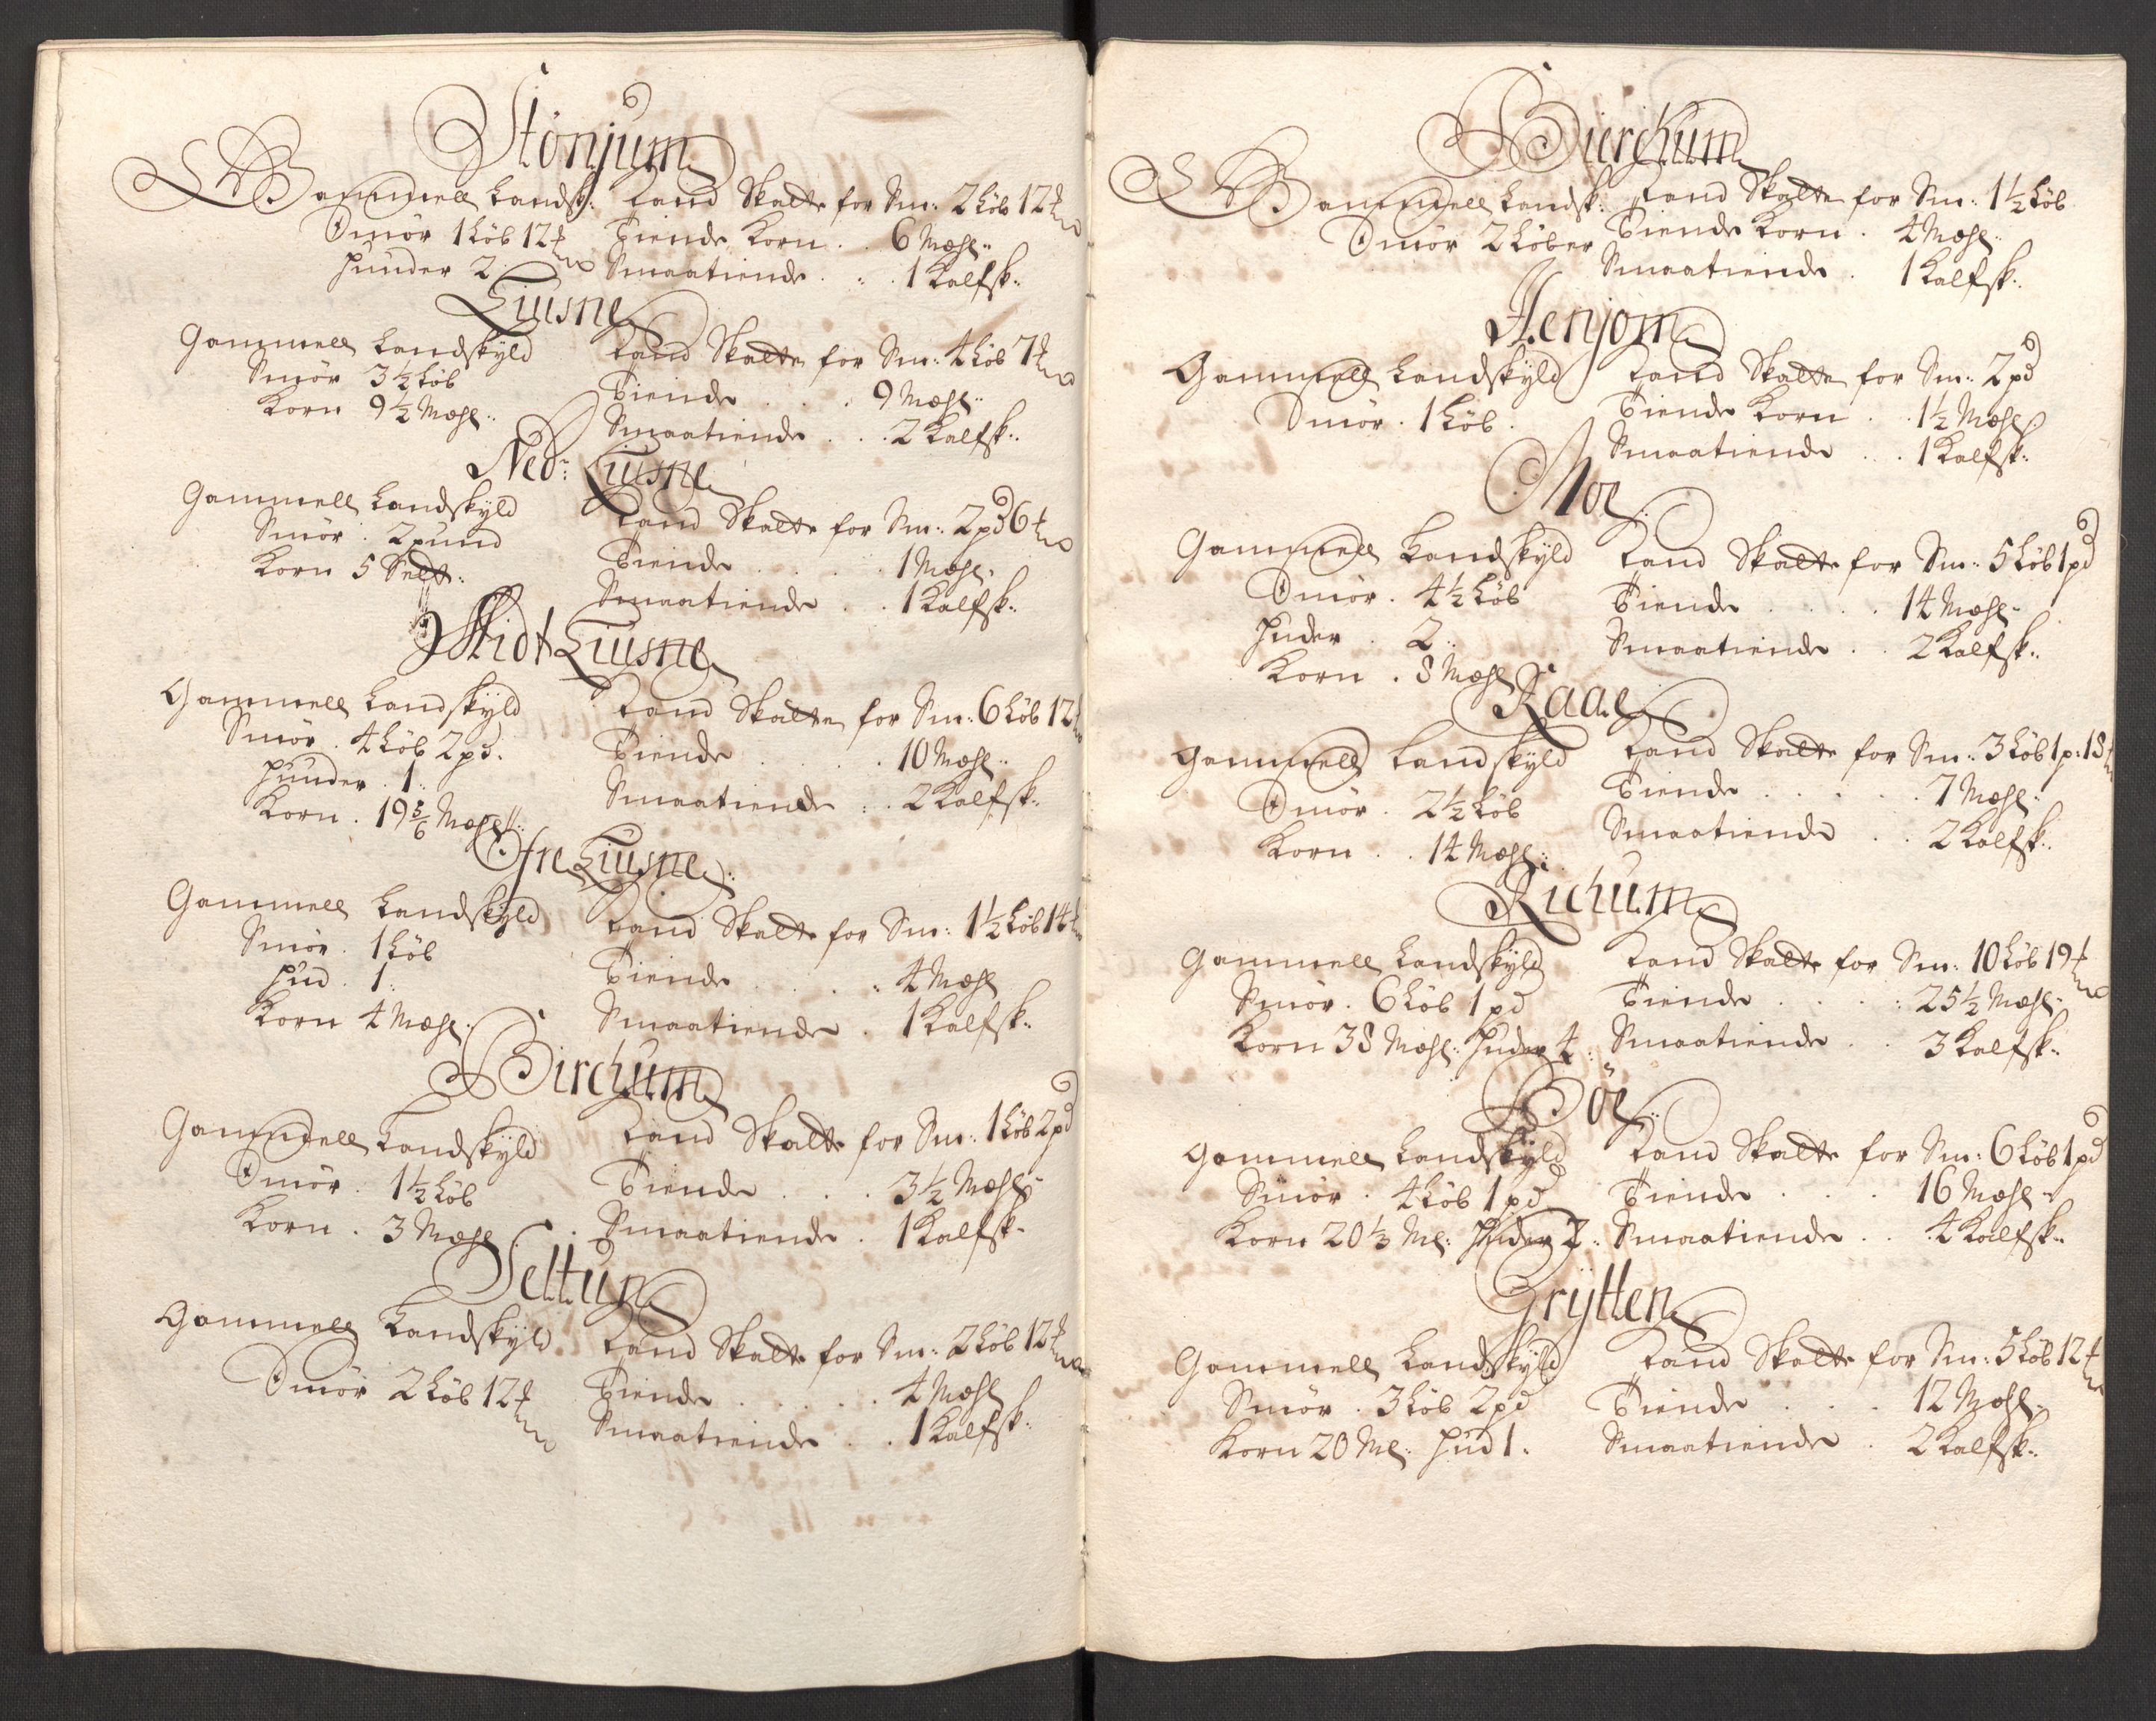 Stönjum
Gammell Landsk: Land Skatte for Sm: 2 Løb 12 ℔
Smör 1 Løb 12 ℔ Tiende Korn . . 6 Mæhl:
Huuder 2 Smaatiende . . 1 Kalfsk:
Liusne
Gammell Landskÿld Land Skatte for Sm: 4 Løb 7 ℔
Smör 3½ Løb Tiende . . . 9 Mæhl:
Korn 9½ Mæhl: Smaatiende . . 2 Kalfsk:
Ned: Liusne
Gammell Landskÿld Land Skatte for Sm: 2 pd 6 ℔
Smör . 2 pund Tiende . . . 1 Mæhl:
Korn 5 Selt: Smaatiende . . 1 Kalfsk:
Midt Liusne
Gammell Landskÿld Land Skatte for Sm: 6 Løb 12 ℔
Smör . 4 Løb 2 pd. Tiende . . . 10 Mæhl:
Huuder . 1: Smaatiende . . 2 Kalfsk:
Korn . 19 5/6 Mæhl:
Ofre Liusne
Gammell Landskÿld Land Skatte for Sm: 1½ Løb 14 ℔
Smör . 1 Løb Tiende . . . 4 Mæhl
Hud . 1: Smaatiende . 1 Kalfsk:
Korn 4 Mæhl:
Birchum
Gammell Landskÿld Land Skatte for Sm: 1 Løb 2 pd
Smör . 1½ Løb Tiende . . . 3½ Mæhl:
Korn . 3 Mæhl Smaatiende . 1 Kalfsk:
Seltun
Gammell Landskÿld Land Skatte for Sm: 2 Løb 12 ℔
Smör 2 Løb 12 ℔ Tiende . . . . 4 Mæhl
Smaatiende . . 1 Kalfsk:
Bierchum
Gammell Landsk: Land Skatte for Sm: 1½ Løb
Smör 2 Løber Tiende Korn . 4 Mæhl:
Smaatiende . 1 Kalfsk:
Henjom
Gammell Landskÿld Land Skatte for Sm: 2 pd
Smör . 1 Løb . Tiende Korn . . 1½ Mæhl
Smaatiende . . 1 Kalfsk:
Moe
Gammell Landskÿld Land Skatte for Sm: 5 Løb 1 pd
Smör . 4½ Løb Tiende . . . . 14 Mæhl:
Huder . 2: Smaatiende . . 2 Kalfsk:
Korn . 8 Mæhl
Raae
Gammell Landskÿld Land Skatte for Sm: 3 Løb 1 p: 18 ℔
Smör . 2½ Løb Tiende . . . . . 7 Mæhl:
Korn . . 14 Mæhl: Smaatiende . . 2 Kalfsk:
Richum
Gammell Landskÿld Land Skatte for Sm: 10 Løb 19 ℔
Smör . 6 Løb 1 pd Tiende . . . : 25½ Mæhl:
Korn 38 Mæhl: Huder 4: Smaatiende . . 3 Kalfsk:
Böe
Gammell Landskÿld Land Skatte for Sm: 6 Løb 1 pd
Smör . 4 Løb 1 pd Tiende . . . 16 Mæhl:
Korn 20⅓ Ml: Huder 2: Smaatiende . . 4 Kalfsk:
Grÿtten
Gammell Landskÿld Land Skatte for Sm: 5 Løb 12 ℔
Smör . 3 Løb 2 pd Tiende . . . 12 Mæhl:
Korn 20 Ml: Hud 1: Smaatiende . 2 Kalfsk: